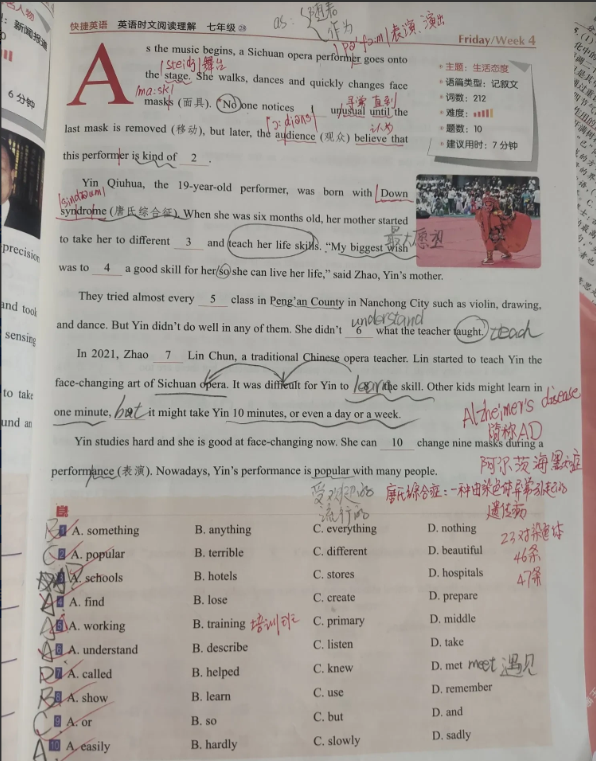 快捷英语 英语时文阅读理解 七年级
as:
作为
表演,演出
Friday/Week 4
主题:生活态度
语篇类型:记叙文
词数:212
难度:
题数:10
建议用时:7 分钟
6 分钟
As the music begins, a Sichuan opera performer goes onto
舞台
the stage. She walks, dances and quickly changes face
masks (面具). No one notices 1 unusual until the
直到
last mask is removed (移动), but later, the audience (观众) believe that
认为
this performer is kind of 2 .
Yin Qiuhua, the 19-year-old performer, was born with Down
syndrome (唐氏综合征). When she was six months old, her mother started
to take her to different 3 and teach her life skills. “My biggest wish
最大愿望
was to 4 a good skill for her so she can live her life,” said Zhao, Yin’s mother.
They tried almost every 5 class in Peng’an County in Nanchong City such as violin, drawing,
understand
and dance. But Yin didn’t do well in any of them. She didn’t 6 what the teacher taught. teach
In 2021, Zhao 7 Lin Chun, a traditional Chinese opera teacher. Lin started to teach Yin the
face-changing art of Sichuan opera. It was difficult for Yin to learn the skill. Other kids might learn in
one minute, but it might take Yin 10 minutes, or even a day or a week.
Alzheimer's disease
简称AD
Yin studies hard and she is good at face-changing now. She can 10 change nine masks during a
阿尔茨海默症
performance (表演). Nowadays, Yin’s performance is popular with many people.
受欢迎的
流行的
唐氏综合症:一种由染色体异常引起的
遗传病
23对染色体
46条
47条
A. something B. anything C. everything D. nothing
A. popular B. terrible C. different D. beautiful
A. schools B. hotels C. stores D. hospitals
A. find B. lose C. create D. prepare
A. working B. training 培训班 C. primary D. middle
A. understand B. describe C. listen D. take
A. called B. helped C. knew D. met meet 遇见
A. show B. learn C. use D. remember
A. or B. so C. but D. and
10 A. easily B. hardly C. slowly D. sadly
precision
and took
sensing
to take
und an